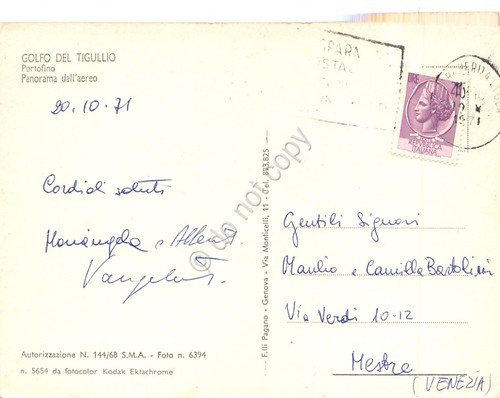 GOLFO DEL TIGULLIO
Portofino
Panorama dall'aereo
20.10.71
Cordiali saluti
Mariangela e
Autorizzazione N. 144/68 S.M.A. - Foto n. 6394
n. 5654 da fotocolor Kodak Ektachrome
F.lli Pagano - Genova - Via Monticelli, 11 - Tel. 883.825
REPUBBLICA
ITALIANA
1971
Gentili Signori
Manlio e Camilla Bartolini
Via Verdi 10-12
Mestre
(VENEZIA)
do not copy